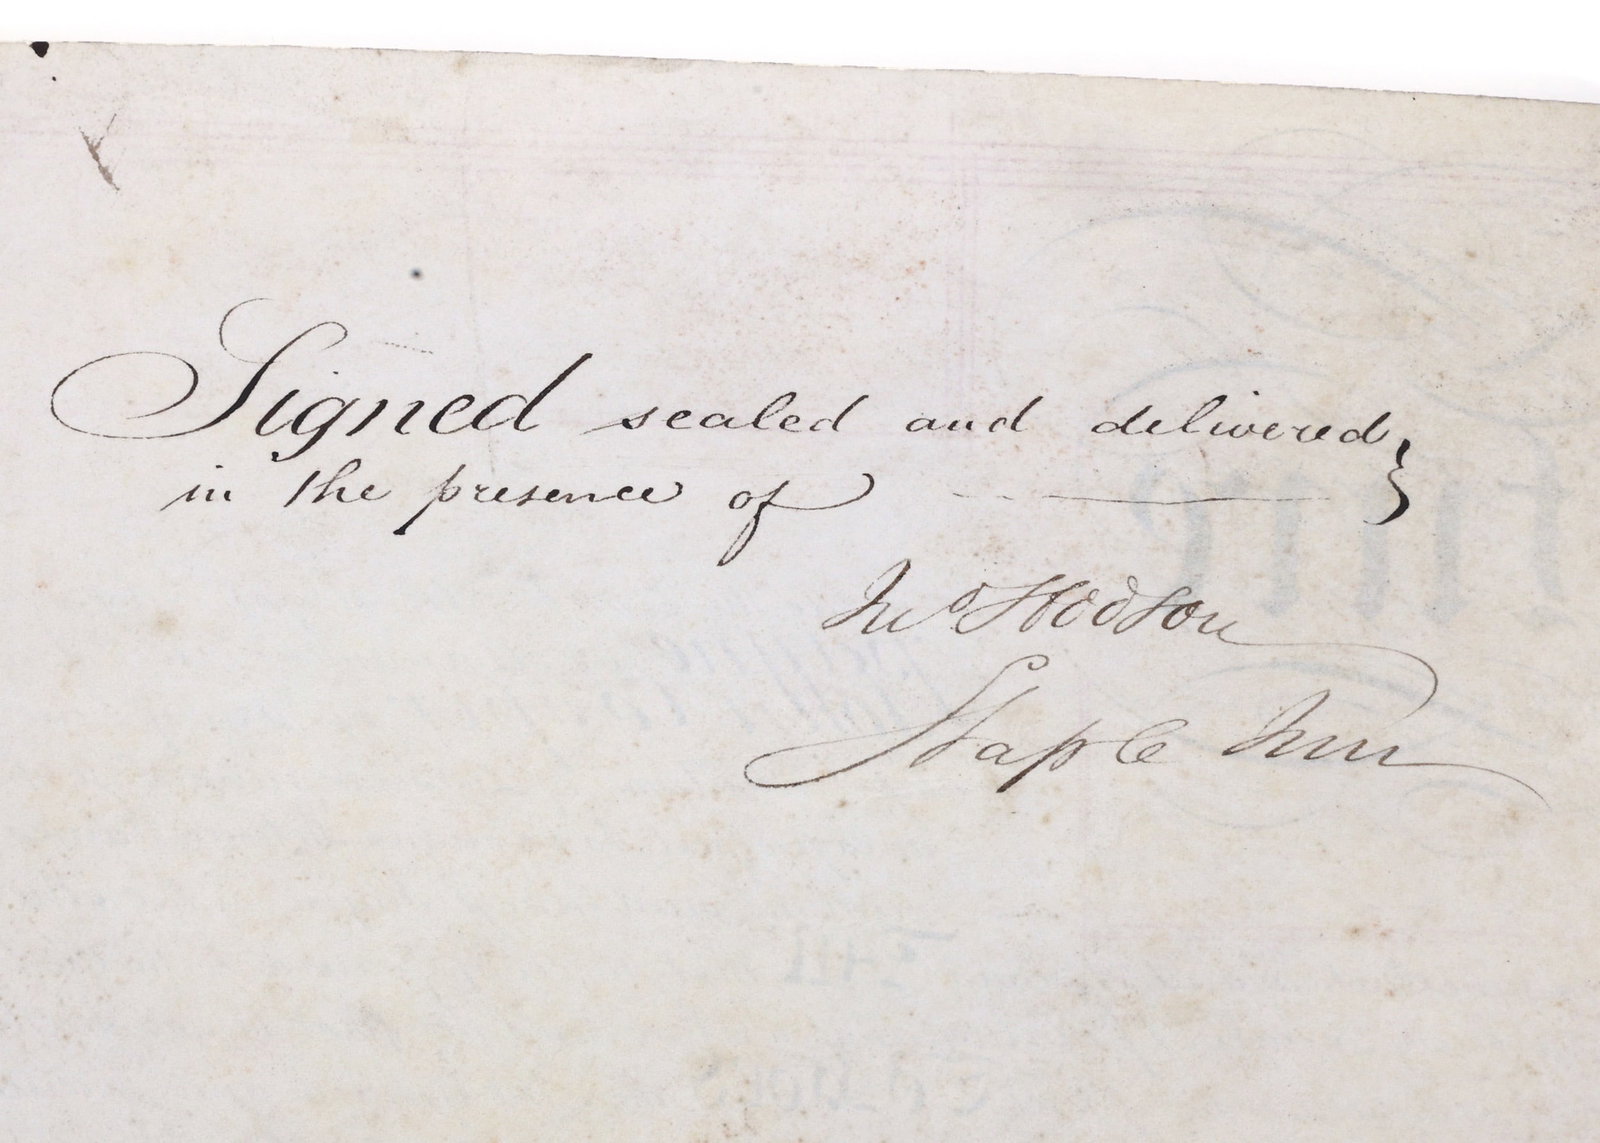 Signed sealed and delivered }
in the presence of
Jnº Hodson
Staple Inn